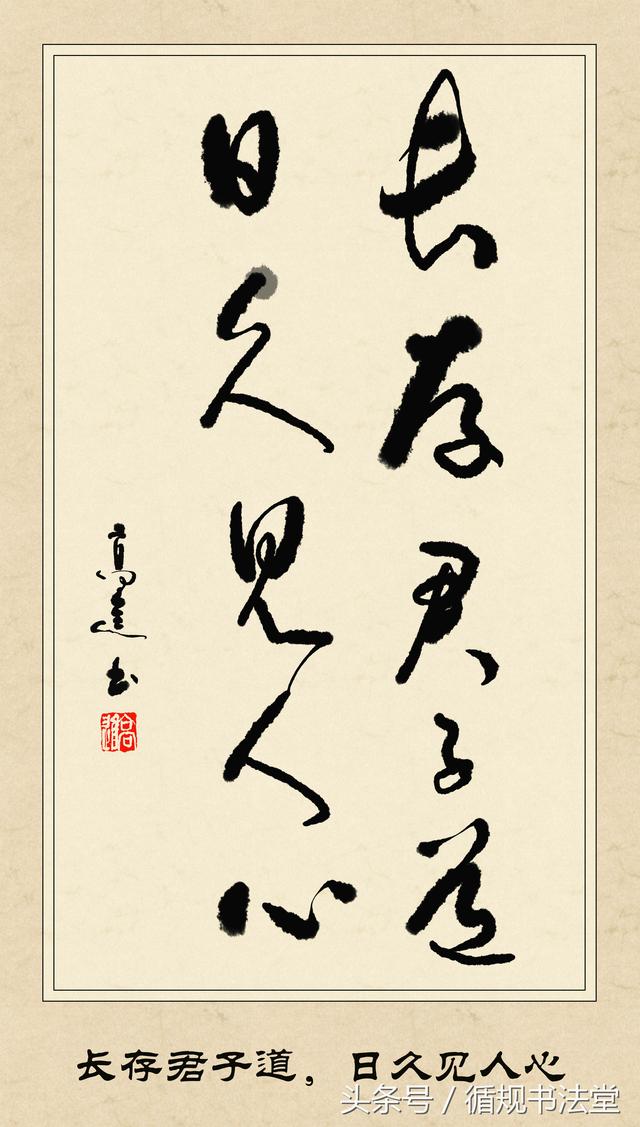 长存君子道
日久見人心
高书
长存君子道，日久见人心
头条号 / 循规书法堂